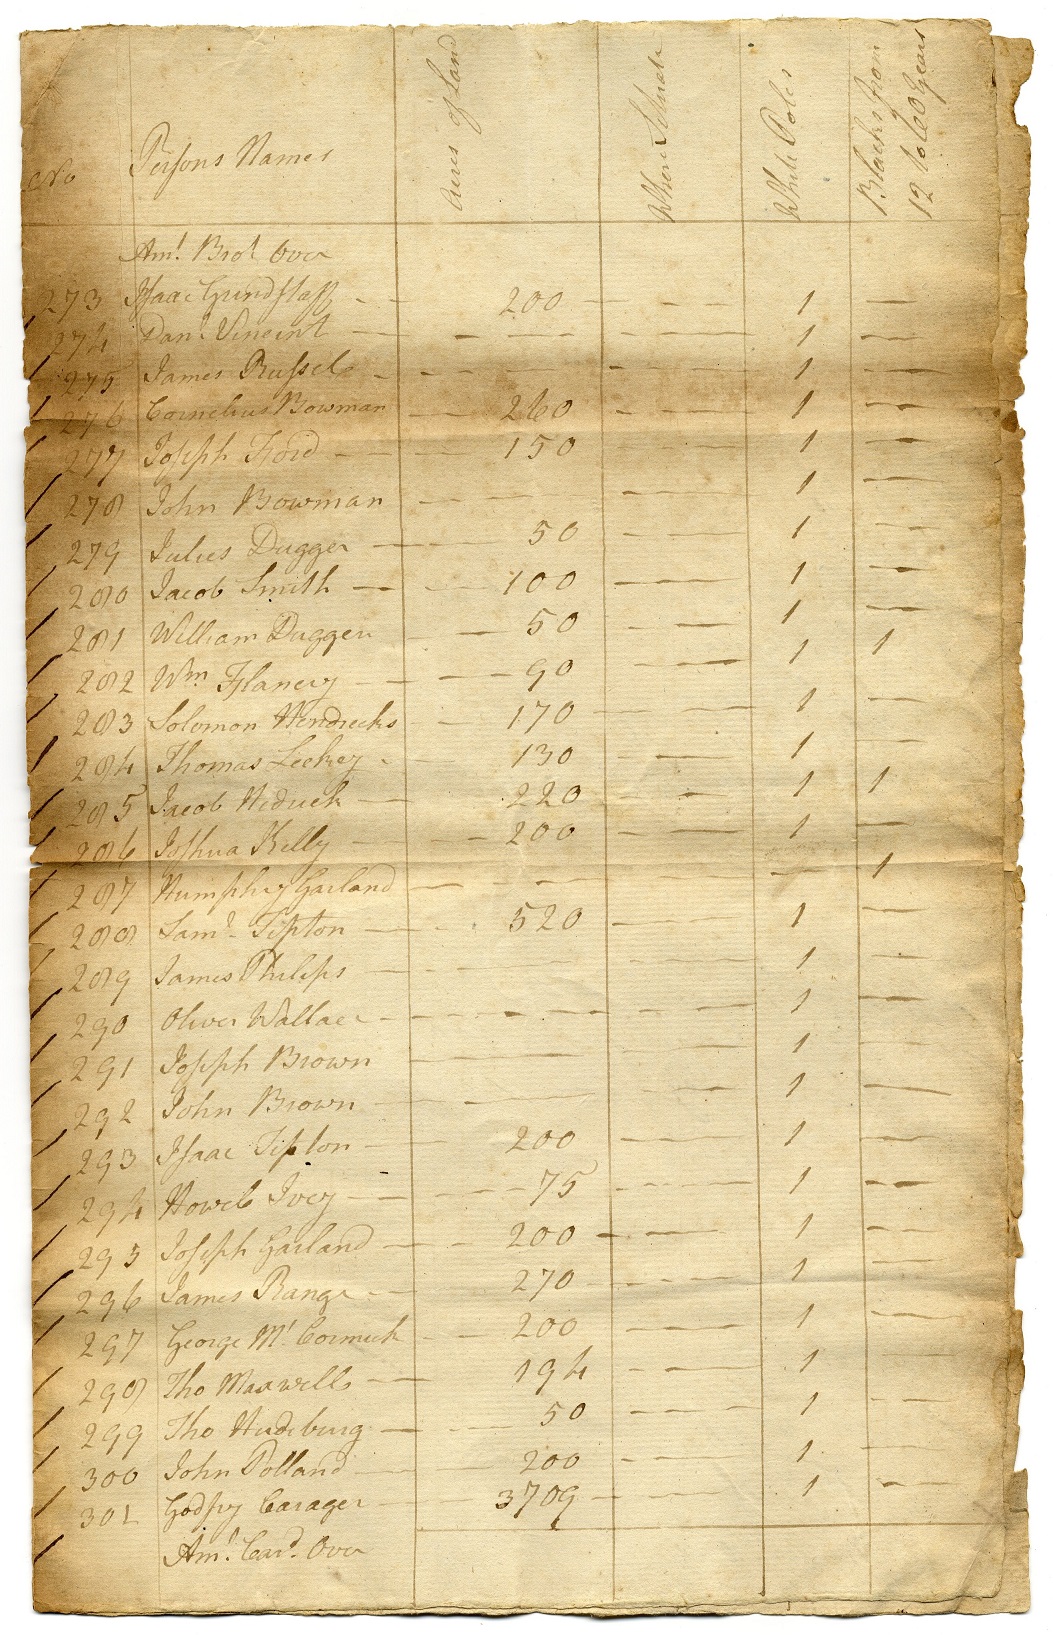 No Persons Names Acres of Land Where Situate White Poles Blacks from 12 to 60 Years
Amt Brot Over
273 Isaac Grindstaff - - 200 - - - - 1 —
274 Danl Vincent — - — — - — — 1 —
275 James Russel - - - — - - — 1 - —
276 Cornelius Bowman - — 260 - - - 1 - —
277 Joseph Ford — - — 150 - - — 1 - —
278 John Bowman - — — - - - — 1 - —
279 Julius Dugger — - — 50 - - — 1 - —
280 Jacob Smith — - — 100 — - — 1 - —
281 William Dugger - — 50 - — — 1 - —
282 Wm Flanery — - - — - 90 - — — 1 1
283 Solomon Hendrecks - — 170 — - — 1 - —
284 Thomas Leekey - - — 130 - — 1 - —
285 Jacob Hedrick — 220 - - — 1 1
286 Joshua Kelly — - — 200 - — 1 —
287 Humphrey Garland — - — - — — - — 1
288 Saml Tipton — - - 520 - - — 1 - —
289 James Philips — - — — - - — 1 - —
290 Oliver Wallace - - - - - — - - — 1 - —
291 Joseph Brown — — — - - — 1 - —
292 John Brown — - — — - - — 1 —
293 Isaac Tipton — 200 - - — 1 - —
294 Howel Ivey — - - - - 75 - - - — 1 - —
295 Joseph Garland — - - 200 - - — 1 - —
296 James Range - — 270 - - — 1 - —
297 George Mc Cormick - - 200 - - — 1 - —
298 Tho Maxwell — 194 - — — 1 —
299 Tho Hudeburg — - — 50 - - — 1 - —
300 John Polland — - 200 - - — 1 —
301 Godfry Carager — - 3709 - - — 1 - —
Amt Card Over